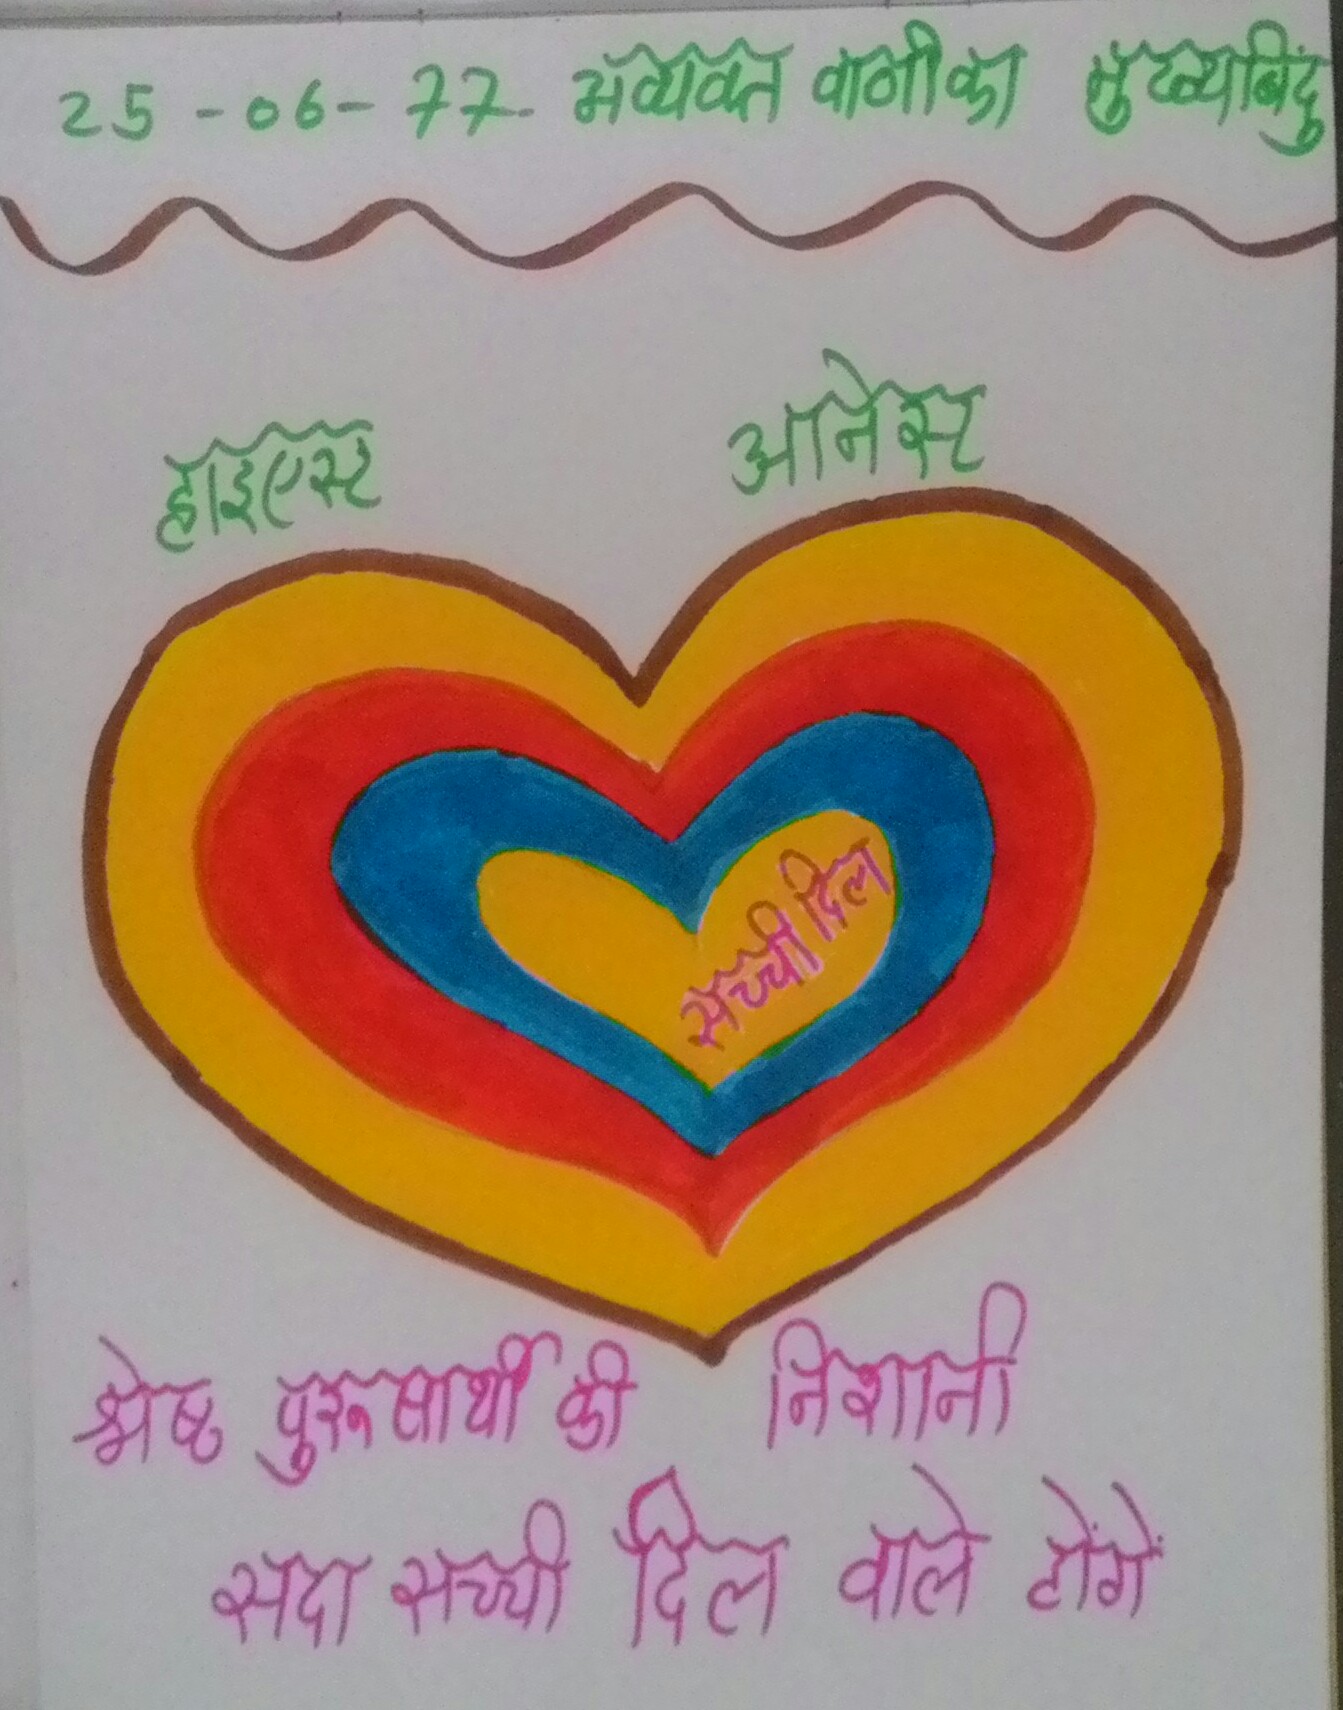 25-06-77 अव्यक्त वाणी का मुख्य बिंदु
हाइएस्ट
आनेस्ट
सच्ची दिल
श्रेष्ठ पुरूषार्थी की निशानी
सदा सच्ची दिल वाले होंगें